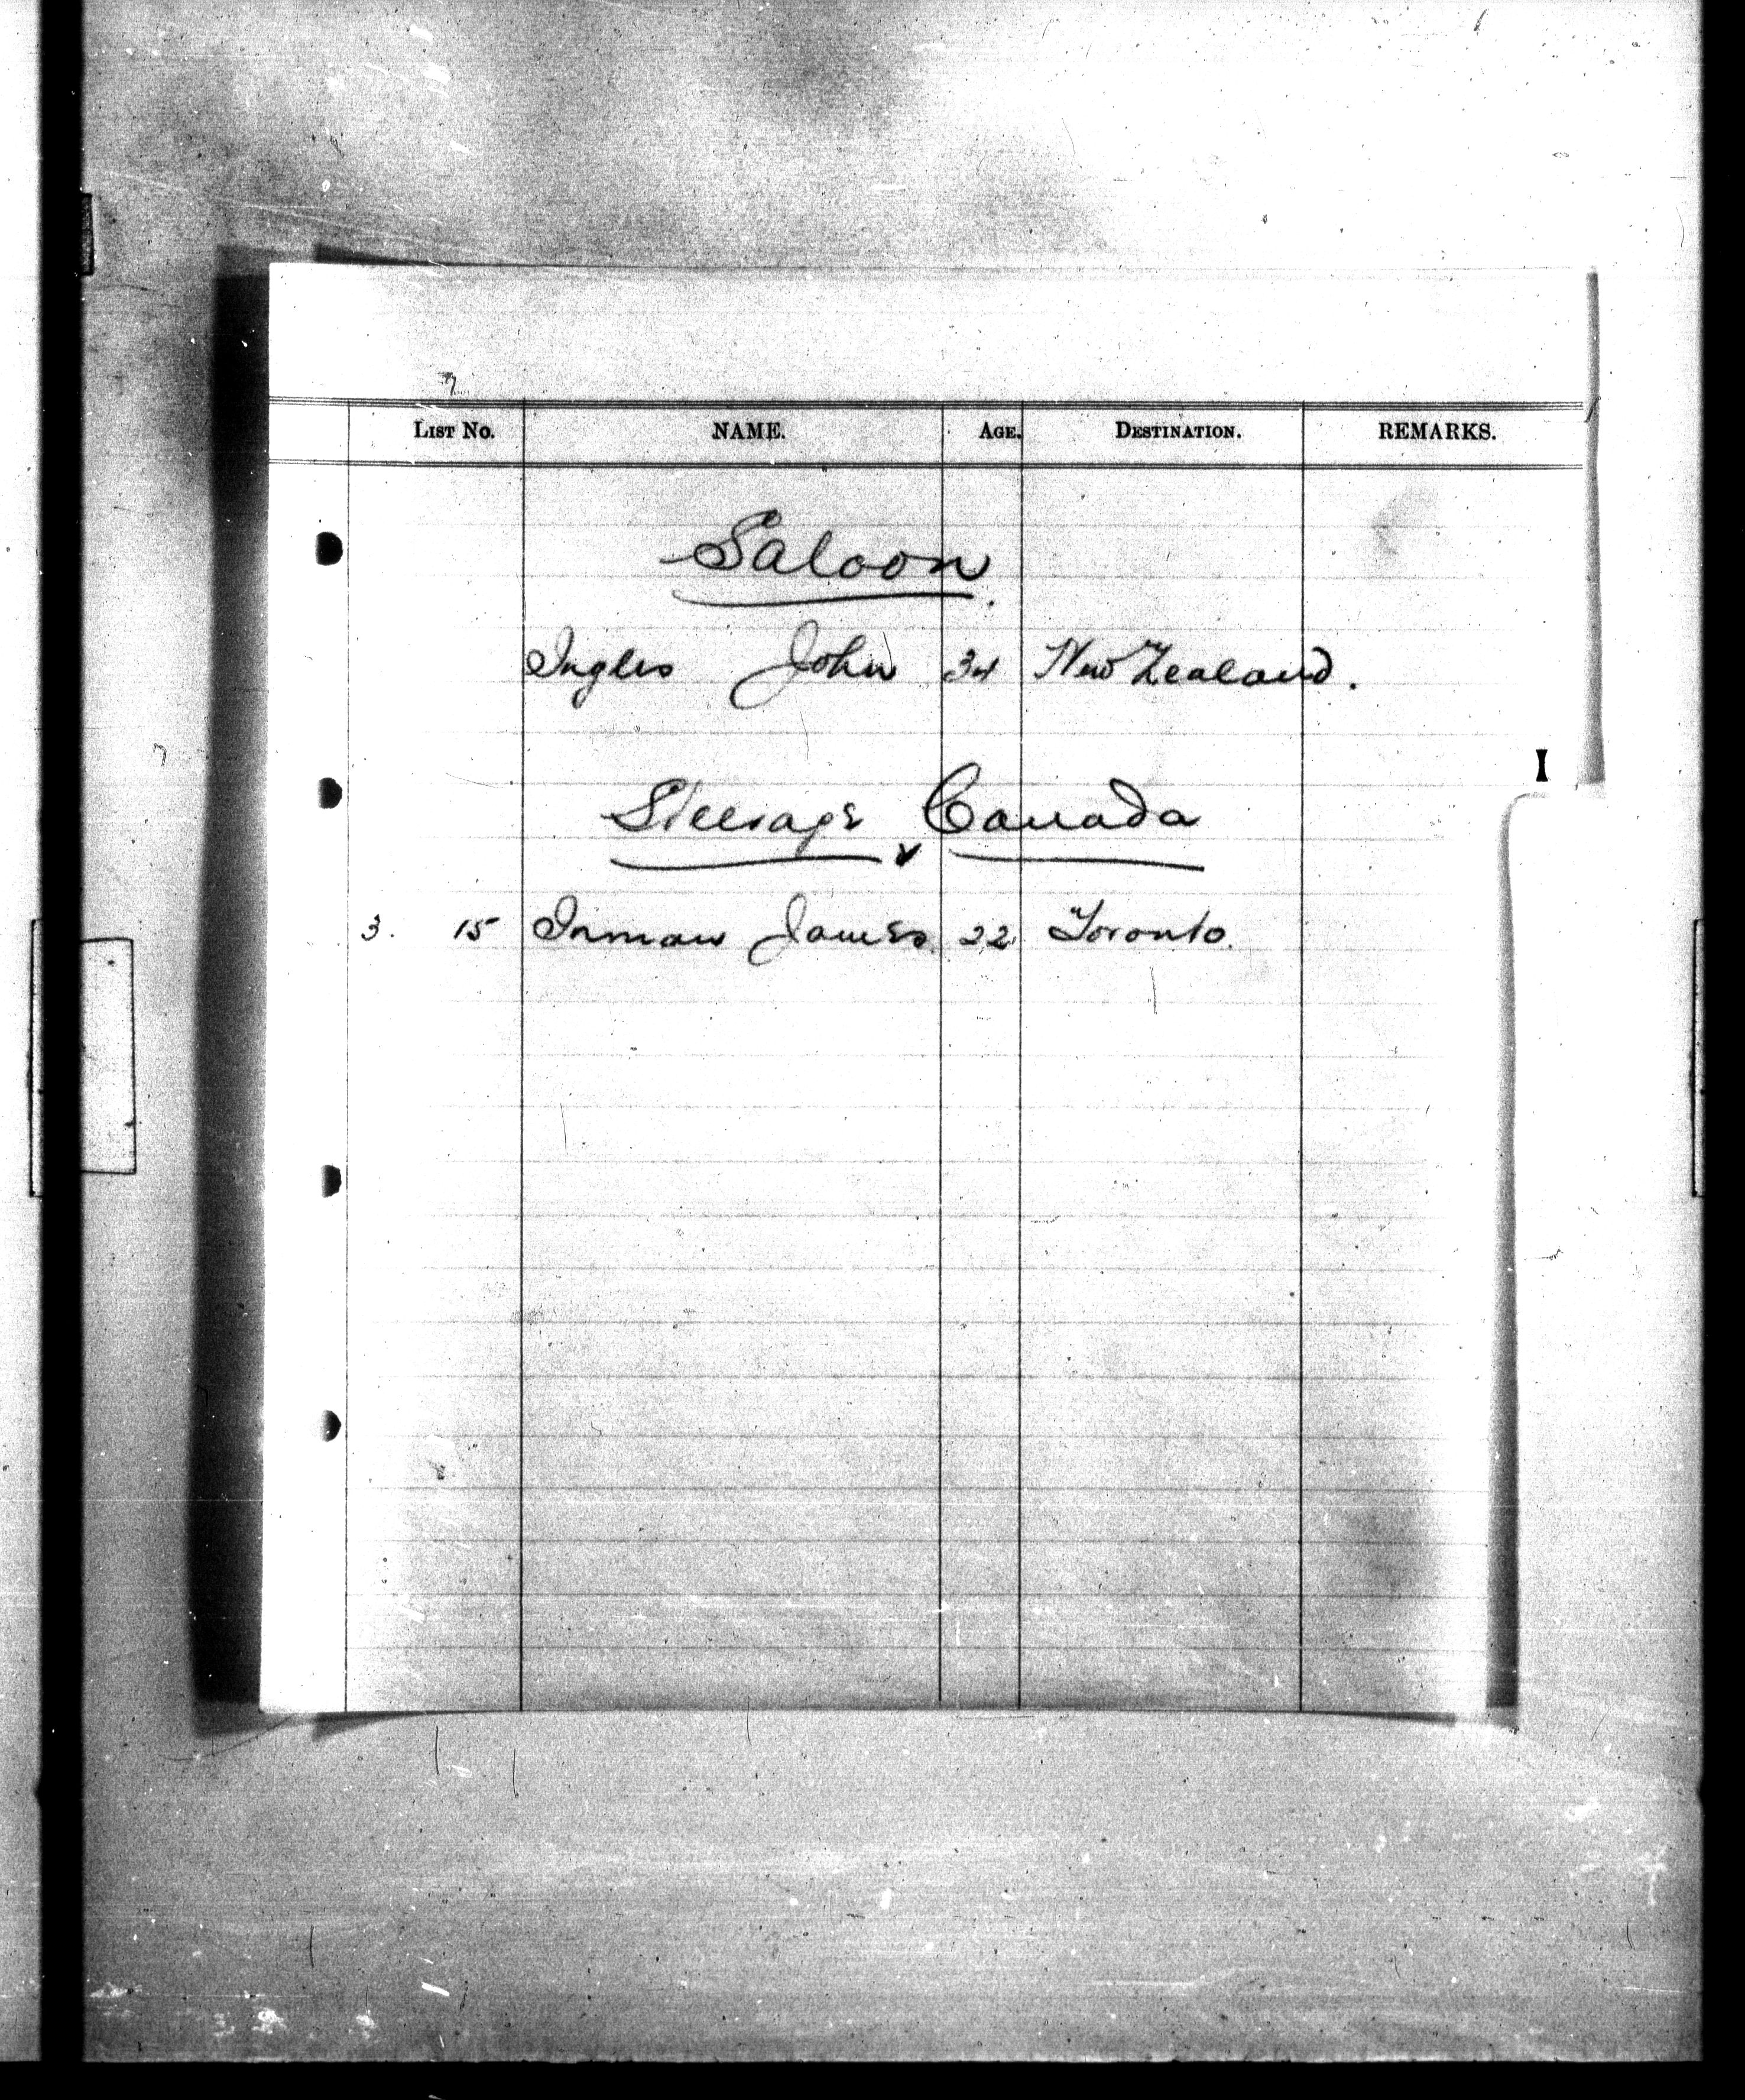 LIST NO. NAME. AGE. DESTINATION. REMARKS.
Saloon.
Ingles John 34 New Zealand.
I
Steerage Canada
3. 15 Inman James. 22 Toronto.